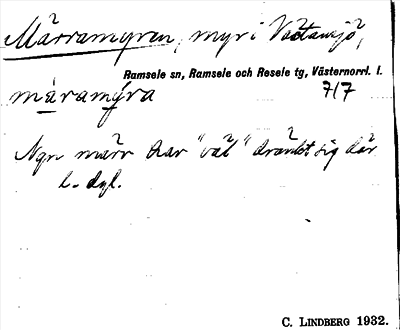 Märramyran, myr i Västansjö,
Ramsele sn, Ramsele och Resele tg, Västernorrl. l.
märamýra 7/7
Ngn märr har "väl" dränkt sig där
l. dyl.
C. LINDBERG 1932.